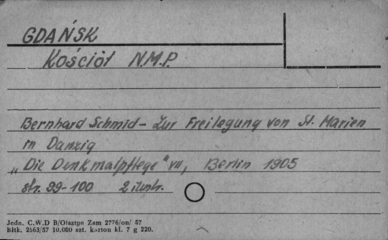 GDAŃSK
Kościół N.M.P.
Bernhard Schmid - Zur Freilegung von St. Marien
in Danzig
„Die Denkmalpflege" VII, Berlin 1905
str. 99-100 2 ilustr.
Jedn. C.W.D B/Olsztyn Zam 2776/on/ 57
Bltk. 2563/57 10.000 szt. karton kl. 7 g 220.